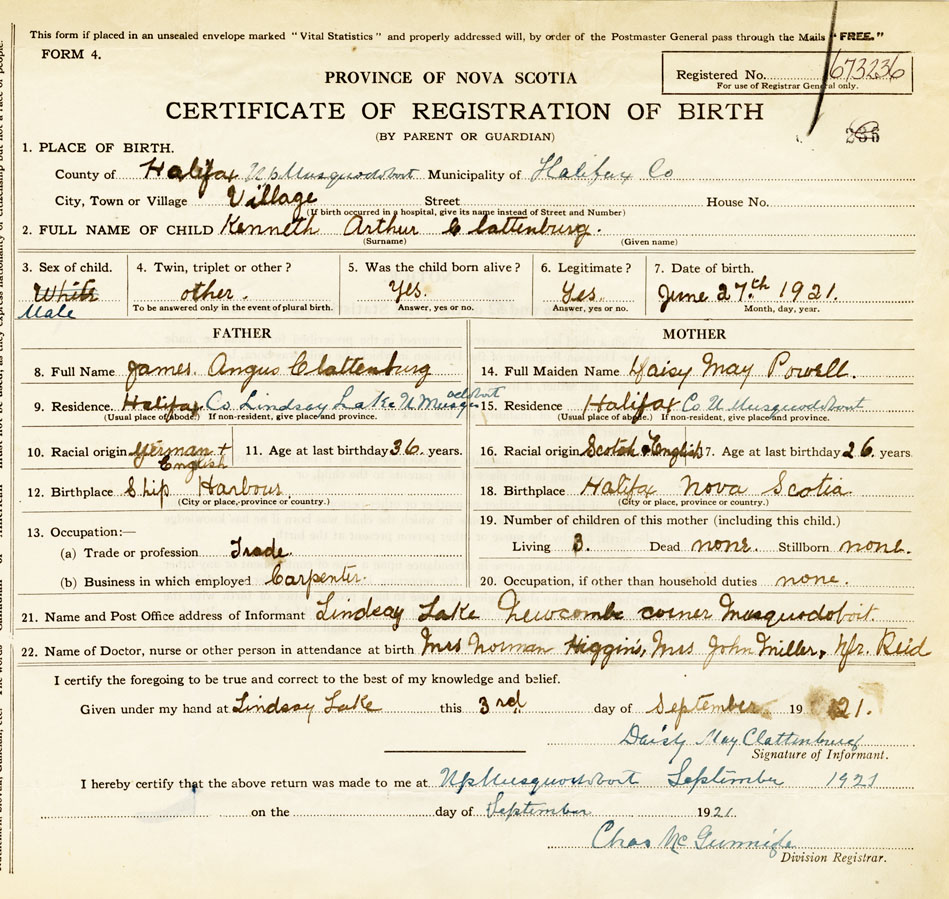 This form if placed in an unsealed envelope marked "Vital Statistics" and properly addressed will, by order of the Postmaster General pass through the Mails "FREE."
FORM 4.
PROVINCE OF NOVA SCOTIA
Registered No. 673236
For use of Registrar General only.
CERTIFICATE OF REGISTRATION OF BIRTH
(BY PARENT OR GUARDIAN)
235
1. PLACE OF BIRTH.
County of Halifax Up Musquodoboit Municipality of Halifax Co
City, Town or Village Village Street House No.
(If birth occurred in a hospital, give its name instead of Street and Number)
2. FULL NAME OF CHILD Kenneth Arthur Clattenburg.
(Surname) (Given name)
3. Sex of child. 4. Twin, triplet or other? 5. Was the child born alive? 6. Legitimate? 7. Date of birth.
White other. Yes. Yes. June 27th 1921.
Male To be answered only in the event of plural birth. Answer, yes or no. Answer, yes or no. Month, day, year.
FATHER MOTHER
8. Full Name James Angus Clattenburg 14. Full Maiden Name Daisy May Powell.
9. Residence. Halifax Co Lindsay Lake U Musquodoboit 15. Residence Halifax Co U Musquodoboit
(Usual place of abode.) If non-resident, give place and province. (Usual place of abode.) If non-resident, give place and province.
10. Racial origin German + English 11. Age at last birthday 36. years. 16. Racial origin Scotch + English 17. Age at last birthday 26. years
12. Birthplace Ship Harbour 18. Birthplace Halifax Nova Scotia
(City or place, province or country.) (City or place, province or country.)
13. Occupation:— 19. Number of children of this mother (including this child.)
(a) Trade or profession Trade Living 3. Dead none. Stillborn none.
(b) Business in which employed Carpenter. 20. Occupation, if other than household duties none.
21. Name and Post Office address of Informant Lindsay Lake Newcombe corner Musquodoboit.
22. Name of Doctor, nurse or other person in attendance at birth Mrs Norman Higgins, Mrs John Miller, Reid
I certify the foregoing to be true and correct to the best of my knowledge and belief.
Given under my hand at Lindsay Lake this 3rd day of September 1921.
Daisy May Clattenburg
Signature of Informant.
I hereby certify that the above return was made to me at Up Musquodoboit September 1921
on the day of September 1921.
Chas
Division Registrar.